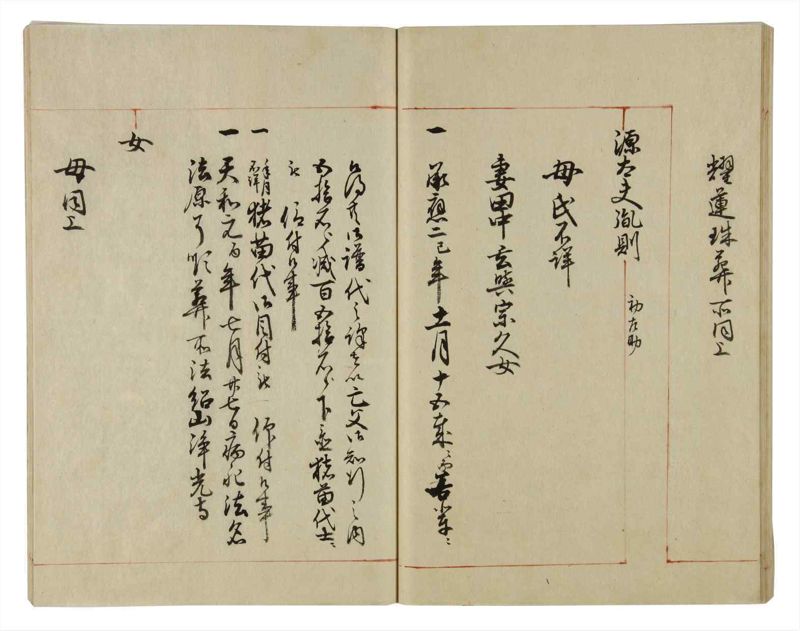 耀蓮珠葬所同上
源太夫胤則
初左助
母氏不詳
妻田中玄與宗久女
一 承應二巳年十一月十五歳ニ而
御譜代之譯を以亡父御知行之内
五拾石被減百五拾石被下置猪苗代士ニ
被 仰付候事
一 年月不詳猪苗代御目付被 仰付候事
一 天和元酉年七月廿七日病死法名
法原了 葬所法紹山浄光寺
女
母同上